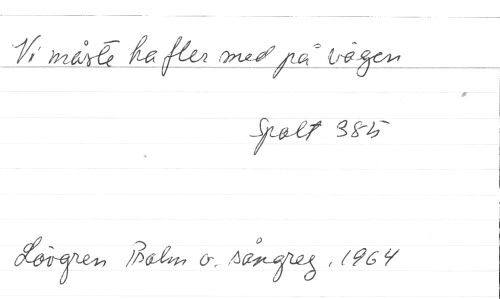 Vi måste ha fler med på vägen
Spalt 385
Lövgren Psalm o. sångreg. 1964